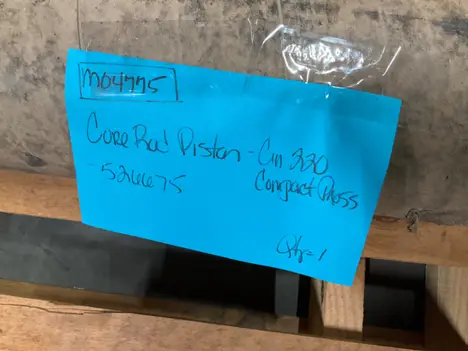 M04775
Core Rod Piston - Cin 330
526675 Compact Press
Qty = 1